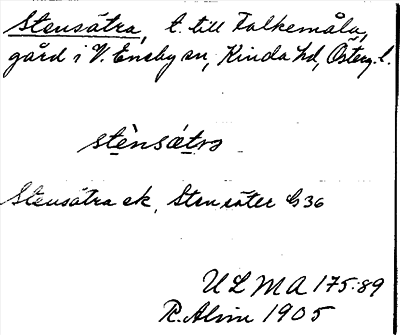 Stensätra, t. till Falkemåla,
gård i V. Eneby sn, Kinda hd, Österg. l.
stènsætra
Stensätra ek, Stensäter G36
ULMA 175:89
R. Alvin 1905